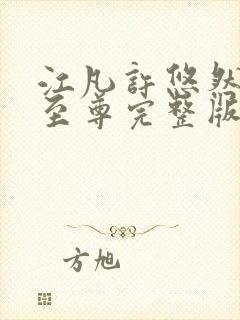 江凡許悠然
至尊完整版
方旭